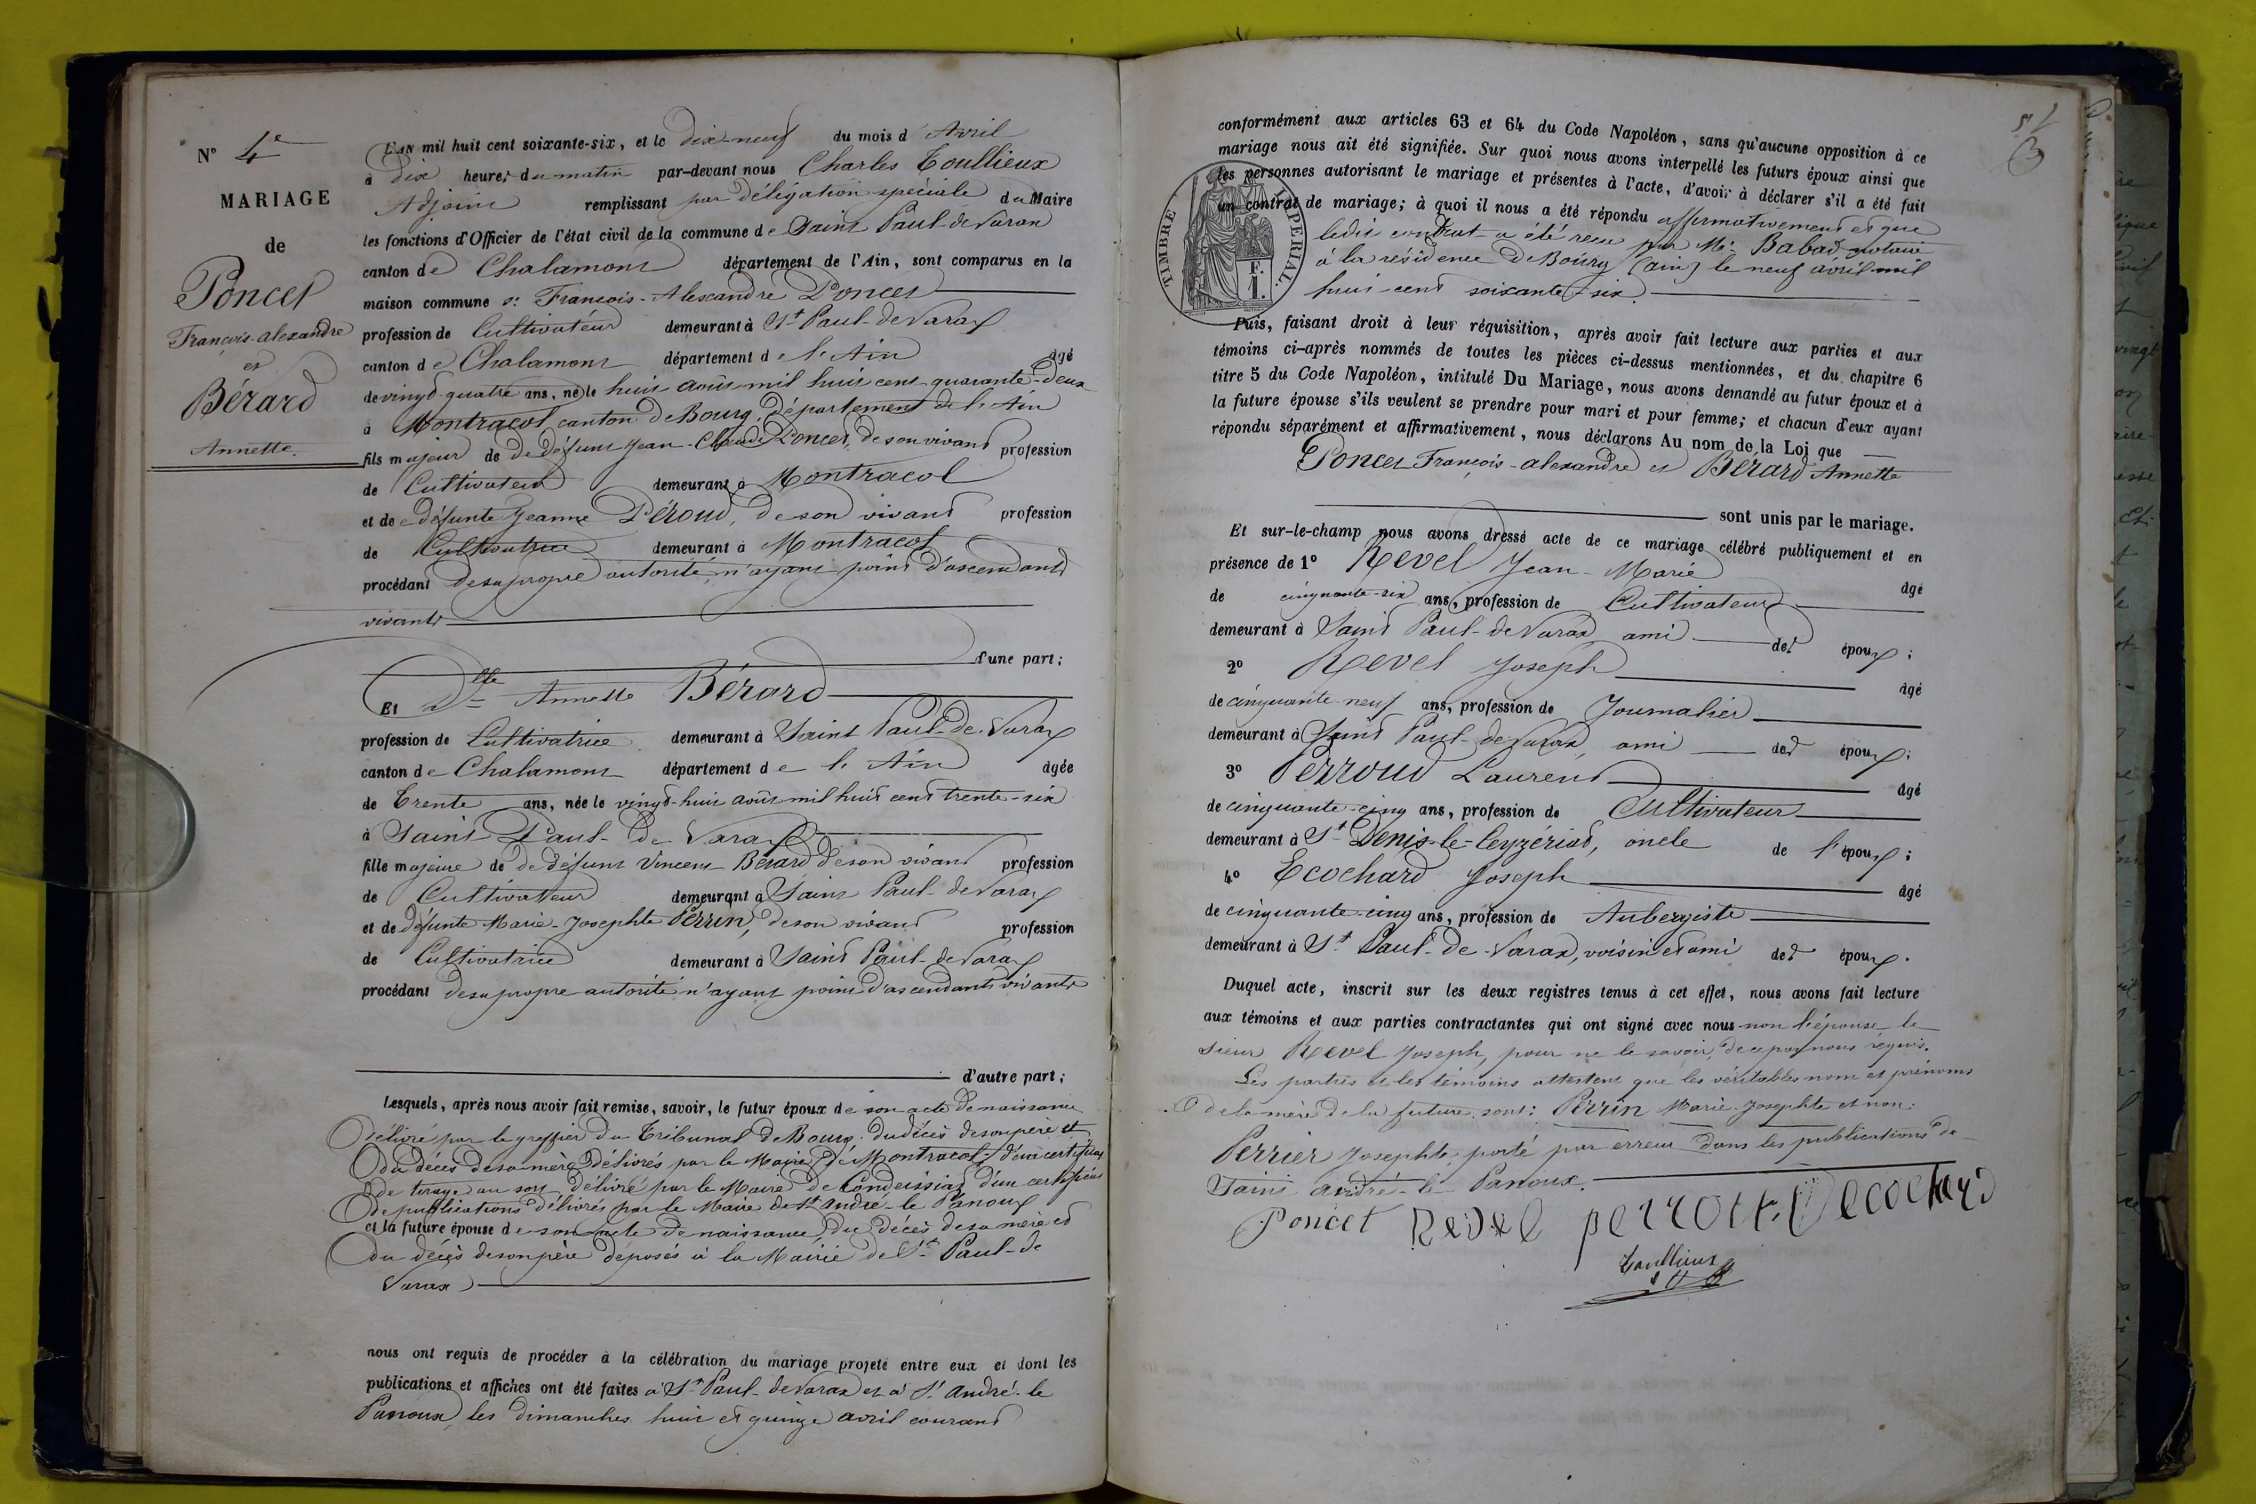 N° 4e
MARIAGE
de
Poncet
François-alexandre
et
Bérard
Annette.
L'AN mil huit cent soixante-six, et le dix-neuf du mois d' Avril
à dix heures du matin par-devant nous Charles Toullieux
Adjoint remplissant par délégation spéciale du Maire
les fonctions d'Officier de l'état civil de la commune de Saint Paul-de Varax
canton de Chalamont département de l'Ain, sont comparus en la
maison commune sr François-Alexandre Poncet
profession de Cultivateur demeurant à St Paul-de Varax
canton de Chalamont département de l'Ain âgé
de vingt-quatre ans, né le huit août mil huit cent quarante-deux
à Montracol canton de Bourg, Département de l'Ain
fils majeur de de défunt Jean-Claude Poncet, de son vivant profession
de Cultivateur demeurant à Montracol
et de défunte Jeanne Péroud, de son vivant profession
de Cultivatrice demeurant à Montracol
procédant de sa propre autorité, n'ayant point d'ascendants
vivants
d'une part;
Et Dlle Annette Bérard
profession de Cultivatrice demeurant à Saint Paul-de-Varax
canton de Chalamont département de l'Ain âgée
de Trente ans, née le vingt-huit août mil huit cent trente-six
à Saint Paul-de Varax
fille majeure de de défunt Vincent Bérard de son vivant profession
de Cultivateur demeurant à Saint Paul-de Varax
et de défunte Marie-Josephte Perrin, de son vivant profession
de Cultivatrice demeurant à Saint Paul-de Varax
procédant de sa propre autorité n'ayant point d'ascendants vivants
d'autre part;
Lesquels, après nous avoir fait remise, savoir, le futur époux de son acte de naissance
délivré par le greffier du Tribunal de Bourg, du décès de son père et
du décès de sa mère délivrés par le Maire de Montracol, d'un certificat
de tirage au sort délivré par le Maire de Condeissiat d'un certificat
de publications délivrés par le Maire de St André-le Panoux
et la future épouse de son acte de naissance, du décès de sa mère et
du décès de son père déposés à la Mairie de St Paul-de
Varax
nous ont requis de procéder à la célébration du mariage projeté entre eux et dont les
publications et affiches ont été faites à St Paul-de Varax et à St André-le
Panoux, les dimanches huit et quinze avril courant
51
conformément aux articles 63 et 64 du Code Napoléon, sans qu'aucune opposition à ce
mariage nous ait été signifiée. Sur quoi nous avons interpellé les futurs époux ainsi que
les personnes autorisant le mariage et présentes à l'acte, d'avoir à déclarer s'il a été fait
un contrat de mariage; à quoi il nous a été répondu affirmativement et que
ledit contrat a été reçu par Me Babad notaire
à la résidence de Bourg (ain) le neuf avril mil
huit cent soixante-six.
TIMBRE IMPERIAL.
F.
1.
Puis, faisant droit à leur réquisition, après avoir fait lecture aux parties et aux
témoins ci-après nommés de toutes les pièces ci-dessus mentionnées, et du chapitre 6
titre 5 du Code Napoléon, intitulé Du Mariage, nous avons demandé au futur époux et à
la future épouse s'ils veulent se prendre pour mari et pour femme; et chacun d'eux ayant
répondu séparément et affirmativement, nous déclarons Au nom de la Loi que
Poncet François-alexandre et Bérard Annette
sont unis par le mariage.
Et sur-le-champ nous avons dressé acte de ce mariage célébré publiquement et en
présence de 1° Revel Jean-Marie
âgé
de cinquante-six ans, profession de Cultivateur
demeurant à Saint Paul-de Varax ami des époux;
2° Revel Joseph
âgé
de cinquante-neuf ans, profession de Journalier
demeurant à Saint Paul-de Varax, ami des époux;
3° Perroud Laurent
âgé
de cinquante-cinq ans, profession de Cultivateur
demeurant à St Denis-le-Ceyzériat, oncle de l'époux;
4° Ecochard Joseph
âgé
de cinquante-cinq ans, profession de Aubergiste
demeurant à St Paul-de-Varax, voisin et ami des époux.
Duquel acte, inscrit sur les deux registres tenus à cet effet, nous avons fait lecture
aux témoins et aux parties contractantes qui ont signé avec nous non l'épouse le
sieur Revel Joseph, pour ne le savoir, de ce par nous requis.
Les parties et les témoins attestent que les véritables nom et prénoms
de la mère de la future, sont: Perrin Marie-Josephte et non:
Perrier Josephte, porté par erreur dans les publications de
Saint André-le Panoux.
Poncet Revel perroud ecochard
Toullieux